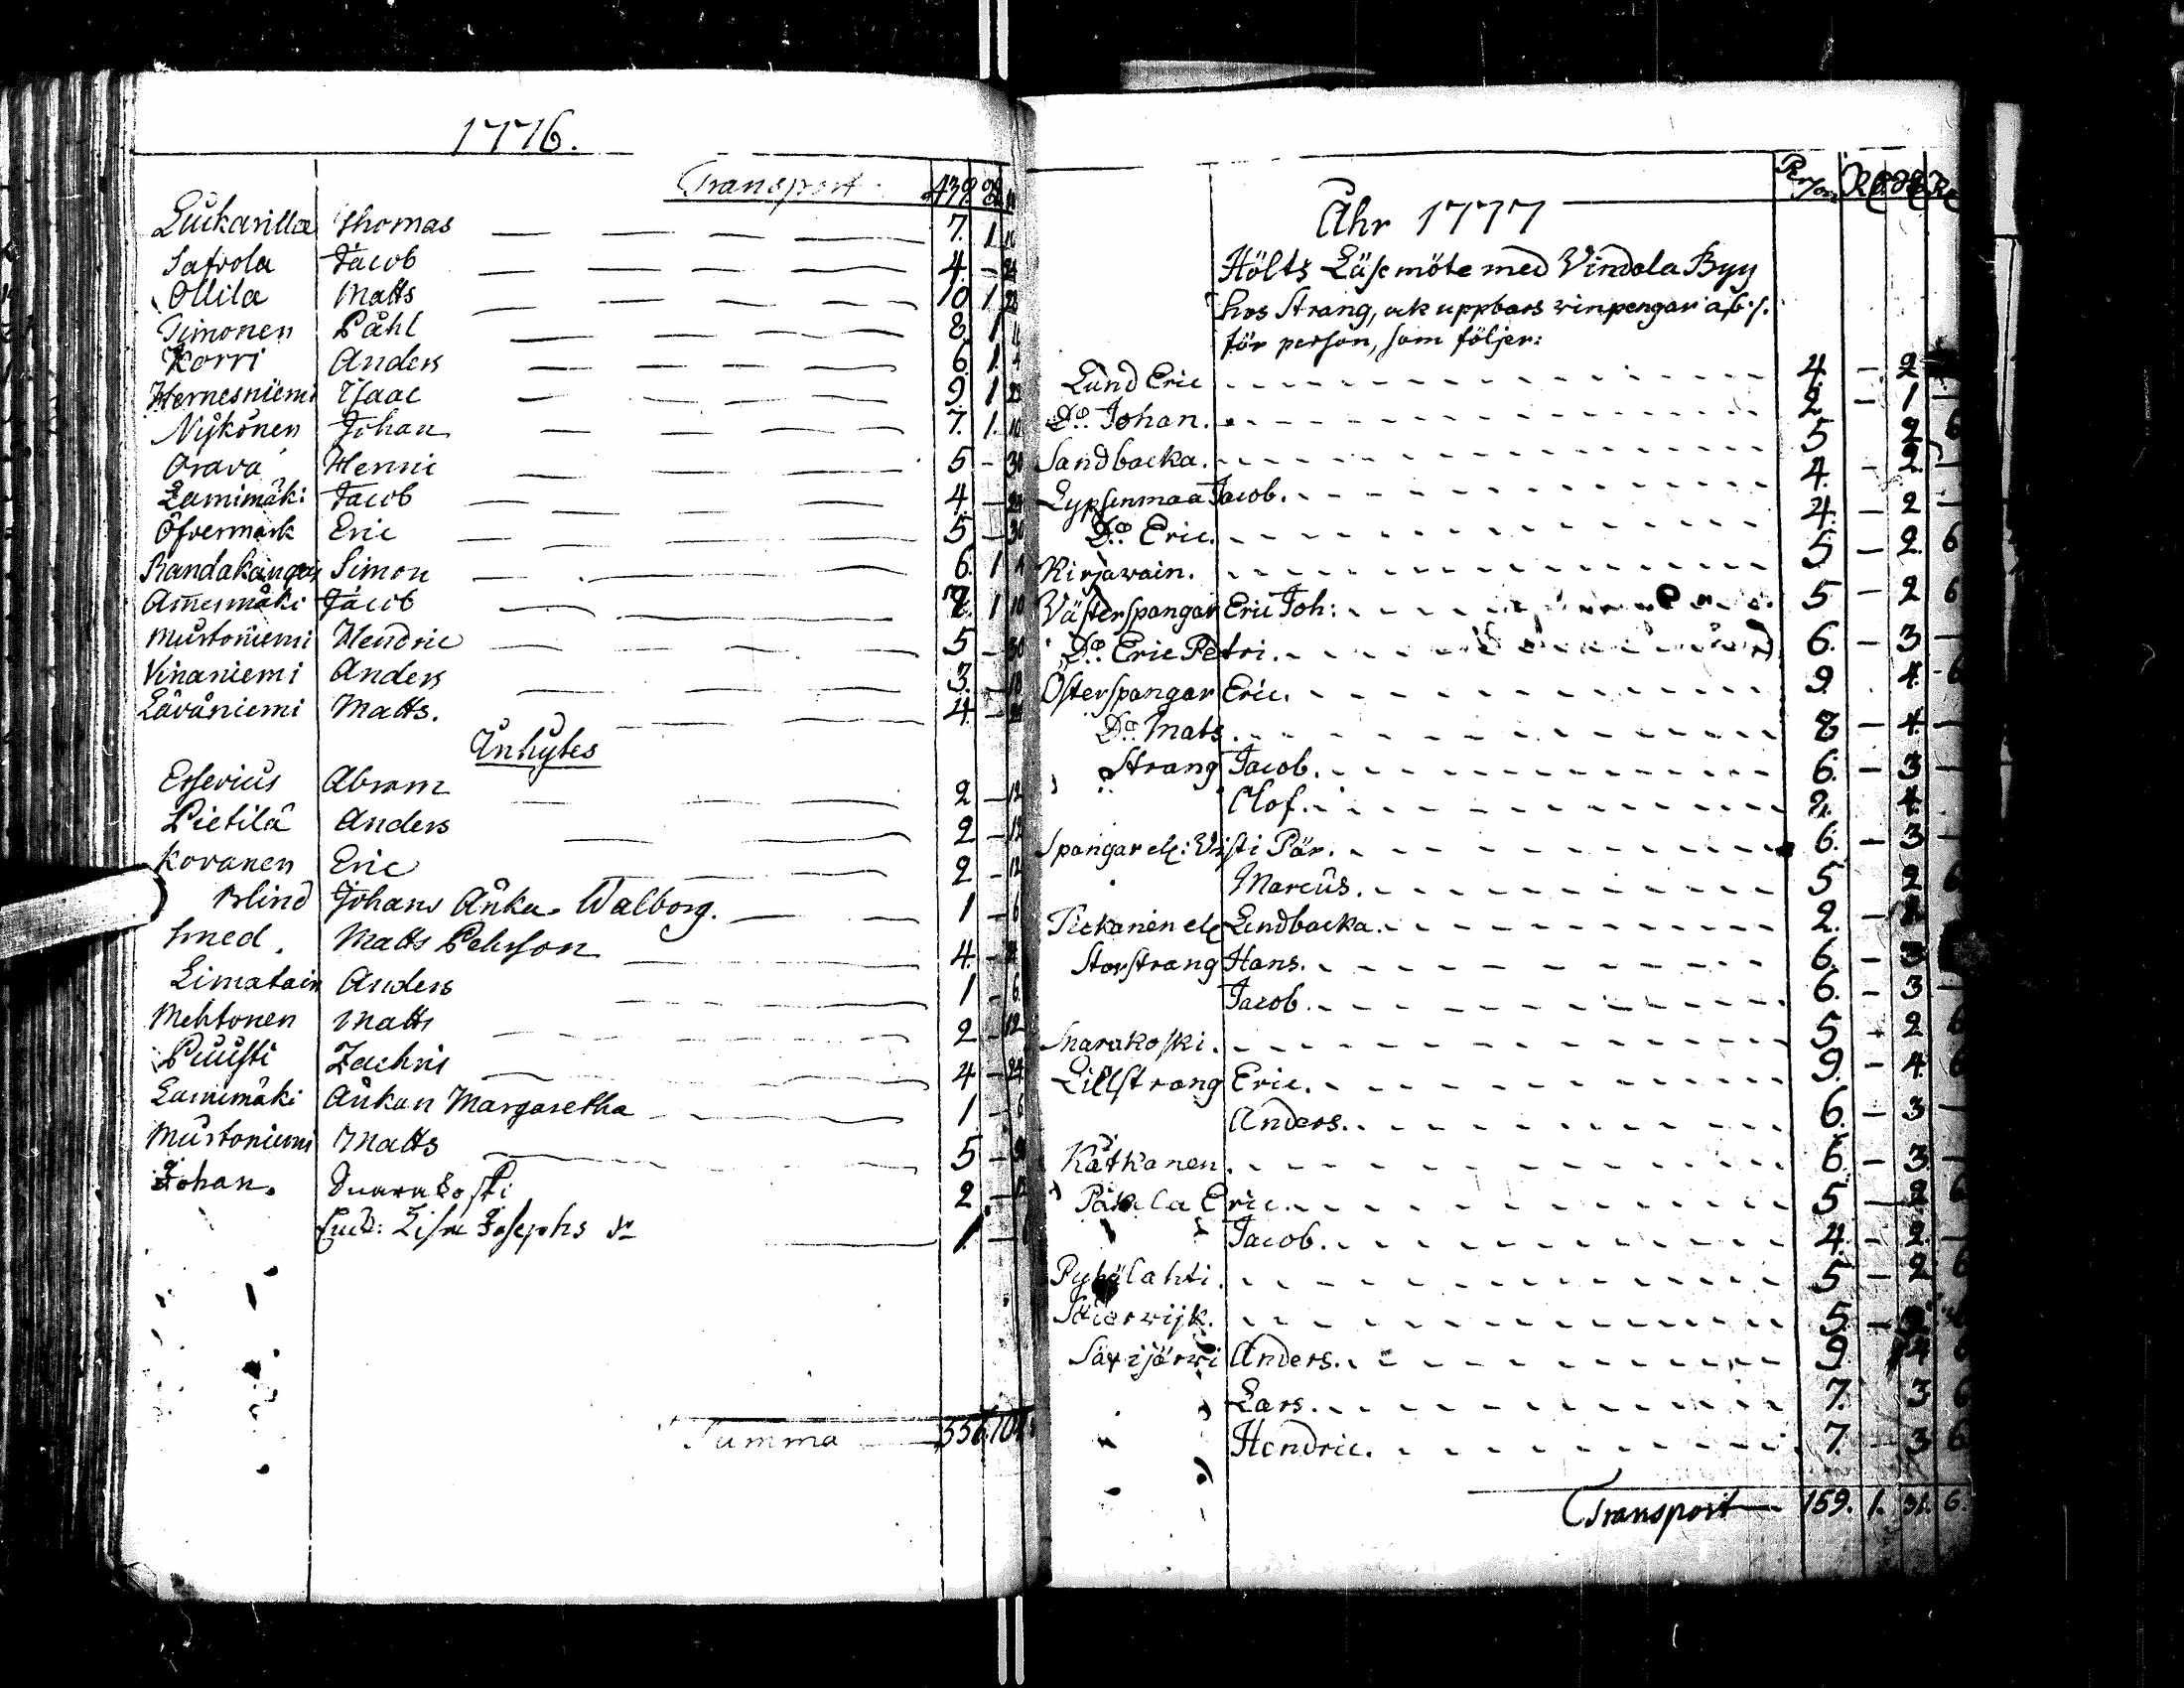 1776.
Transport. 439
Luckarilla Thomas 7. 1
Satvola Jacob 4. –
Ollila Matts 10 1
Timonen Påhl 8. 1
Korri Anders 6. 1
Hernesniemi Isaac 9 1
Nykönen Johan 7. 1. 10
Orava Henric 5 – 30
Lamimäki Jacob 4 – 24
Öfvermark Eric 5 – 30
Randakangas Simon 6. 1 4
Am̄esmäki Jacob 7. 1 10
Mustoniemi Hendric 5 – 30
Vinaniemi Anders 3. – 18
Låvåniemi Matts. 4 – 24
Inhytes
Esserius Abram 2 – 12
Pietilä Anders 2 – 12
Kovanen Eric 2 – 12
Blind Johans Änka Walborg. 1 – 6
Smed. Matts Pehrson 4. –
Limatain Anders 1 – 6
Mehtonen Matts 2 – 12
Puusti Zachris 4 – 24
Lamimäki Änkan Margaretha 1 – 6
Mustoniemi Matts 5 – 30
Johan. Snarakoski 2 – 12
Lisa Josephs dr 1. –
Summa 556
Person
Åhr 1777
Hölts Läsemöte med Vindala Byy
hos Strang, ock uppbars vinpengar
för person, som följer:
Lund Eric 4. – 2
Do. Johan. 2. – 1 –
Sandbacka. 5 2 6
Lypsenmaa Jacob. 4. – 2 –
Do. Eric. 4. – 2 –
Kirjavain. 5 – 2. 6
Västerspangar Eric Joh: 5 – 2 6
Do. Eric Petri. 6. – 3 –
Österspangar Eric. 9. 4. 6
Do. Mats. 8 – 4. –
Strang Jacob. 6. – 3 –
Olof.
Spangar el: Visti Pär. 6. – 3 –
Marcus. 5 2 6
Pickanen el: Lindbacka. 2. –
Storstrang Hans. 6. – 3
Jacob. 6. – 3 –
Snarakoski. 5 – 2 6
Lillstrang Eric. 9. – 4. 6
Anders. 6. – 3 –
Kätkanen. 6. – 3 –
Päkula Eric. 5 – 2 6
Jacob. 4. – 2. –
Pyhälahti. 5 – 2 6
Stierwijk. 5. –
Säxijärwi Anders. 9. 4 6
Lars. 7. 3 6
Hendric. 7. – 3 6
Transport 159. 1. 31. 6.